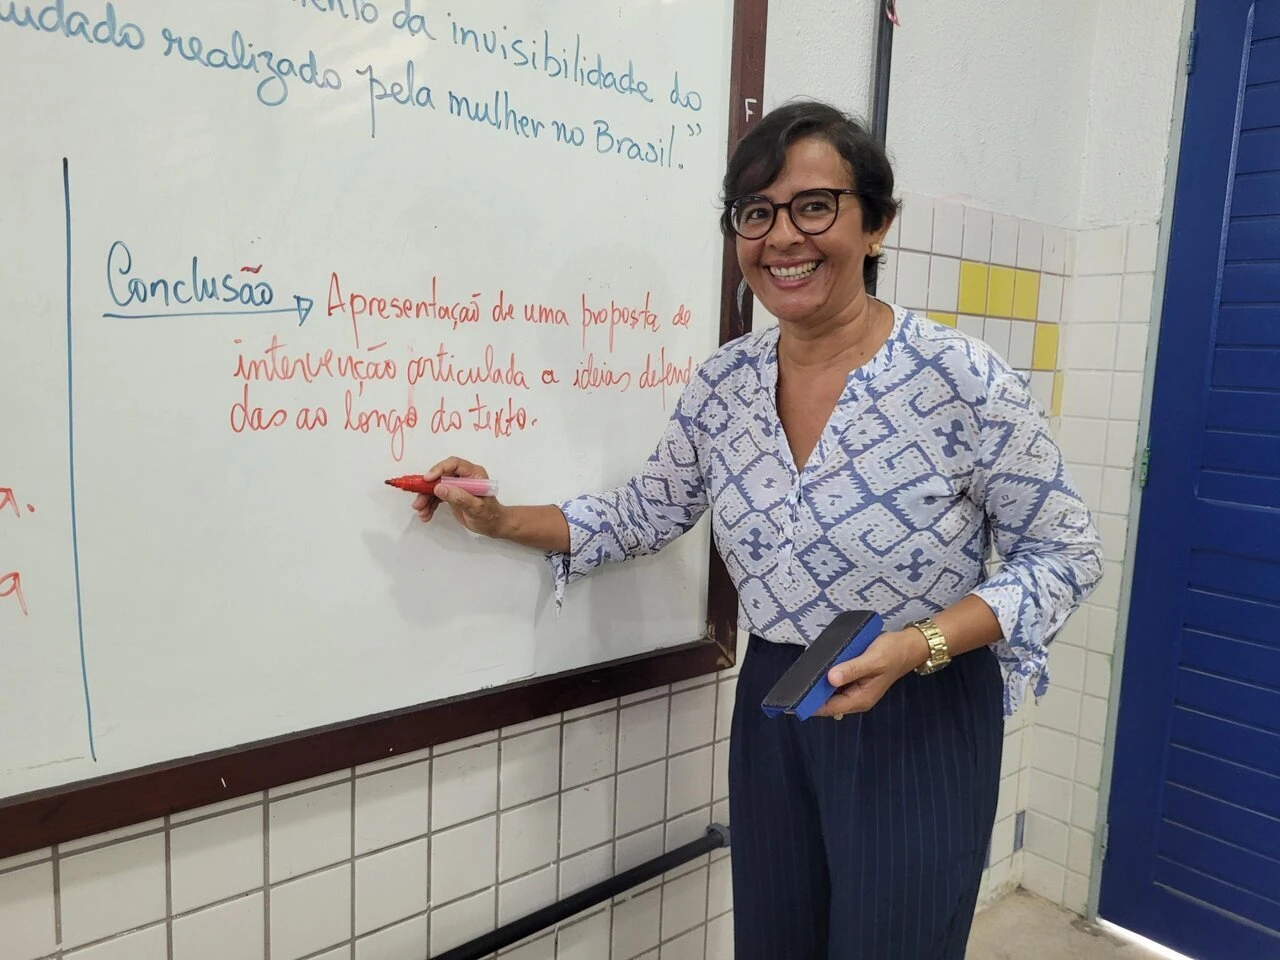 da invisibilidade do
realizado pela mulher no Brasil.”
Conclusão → Apresentação de uma proposta de
intervenção articulada a ideias defend
das ao longo do texto.
a.
a
F